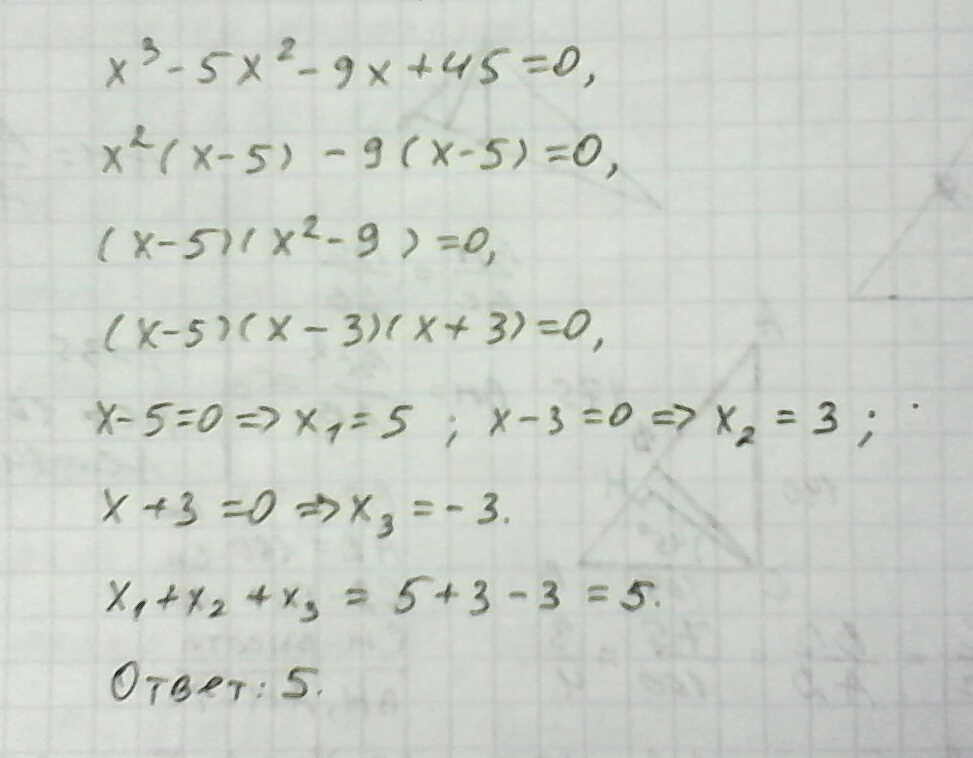 x³-5x²-9x+45=0,
x²(x-5) -9(x-5)=0,
(x-5)(x²-9)=0,
(x-5)(x-3)(x+3)=0,
x-5=0⇒x₁=5 ; x-3=0⇒x₂=3 ;
x+3=0⇒x₃=-3.
x₁+x₂+x₃=5+3-3=5.
Ответ: 5.